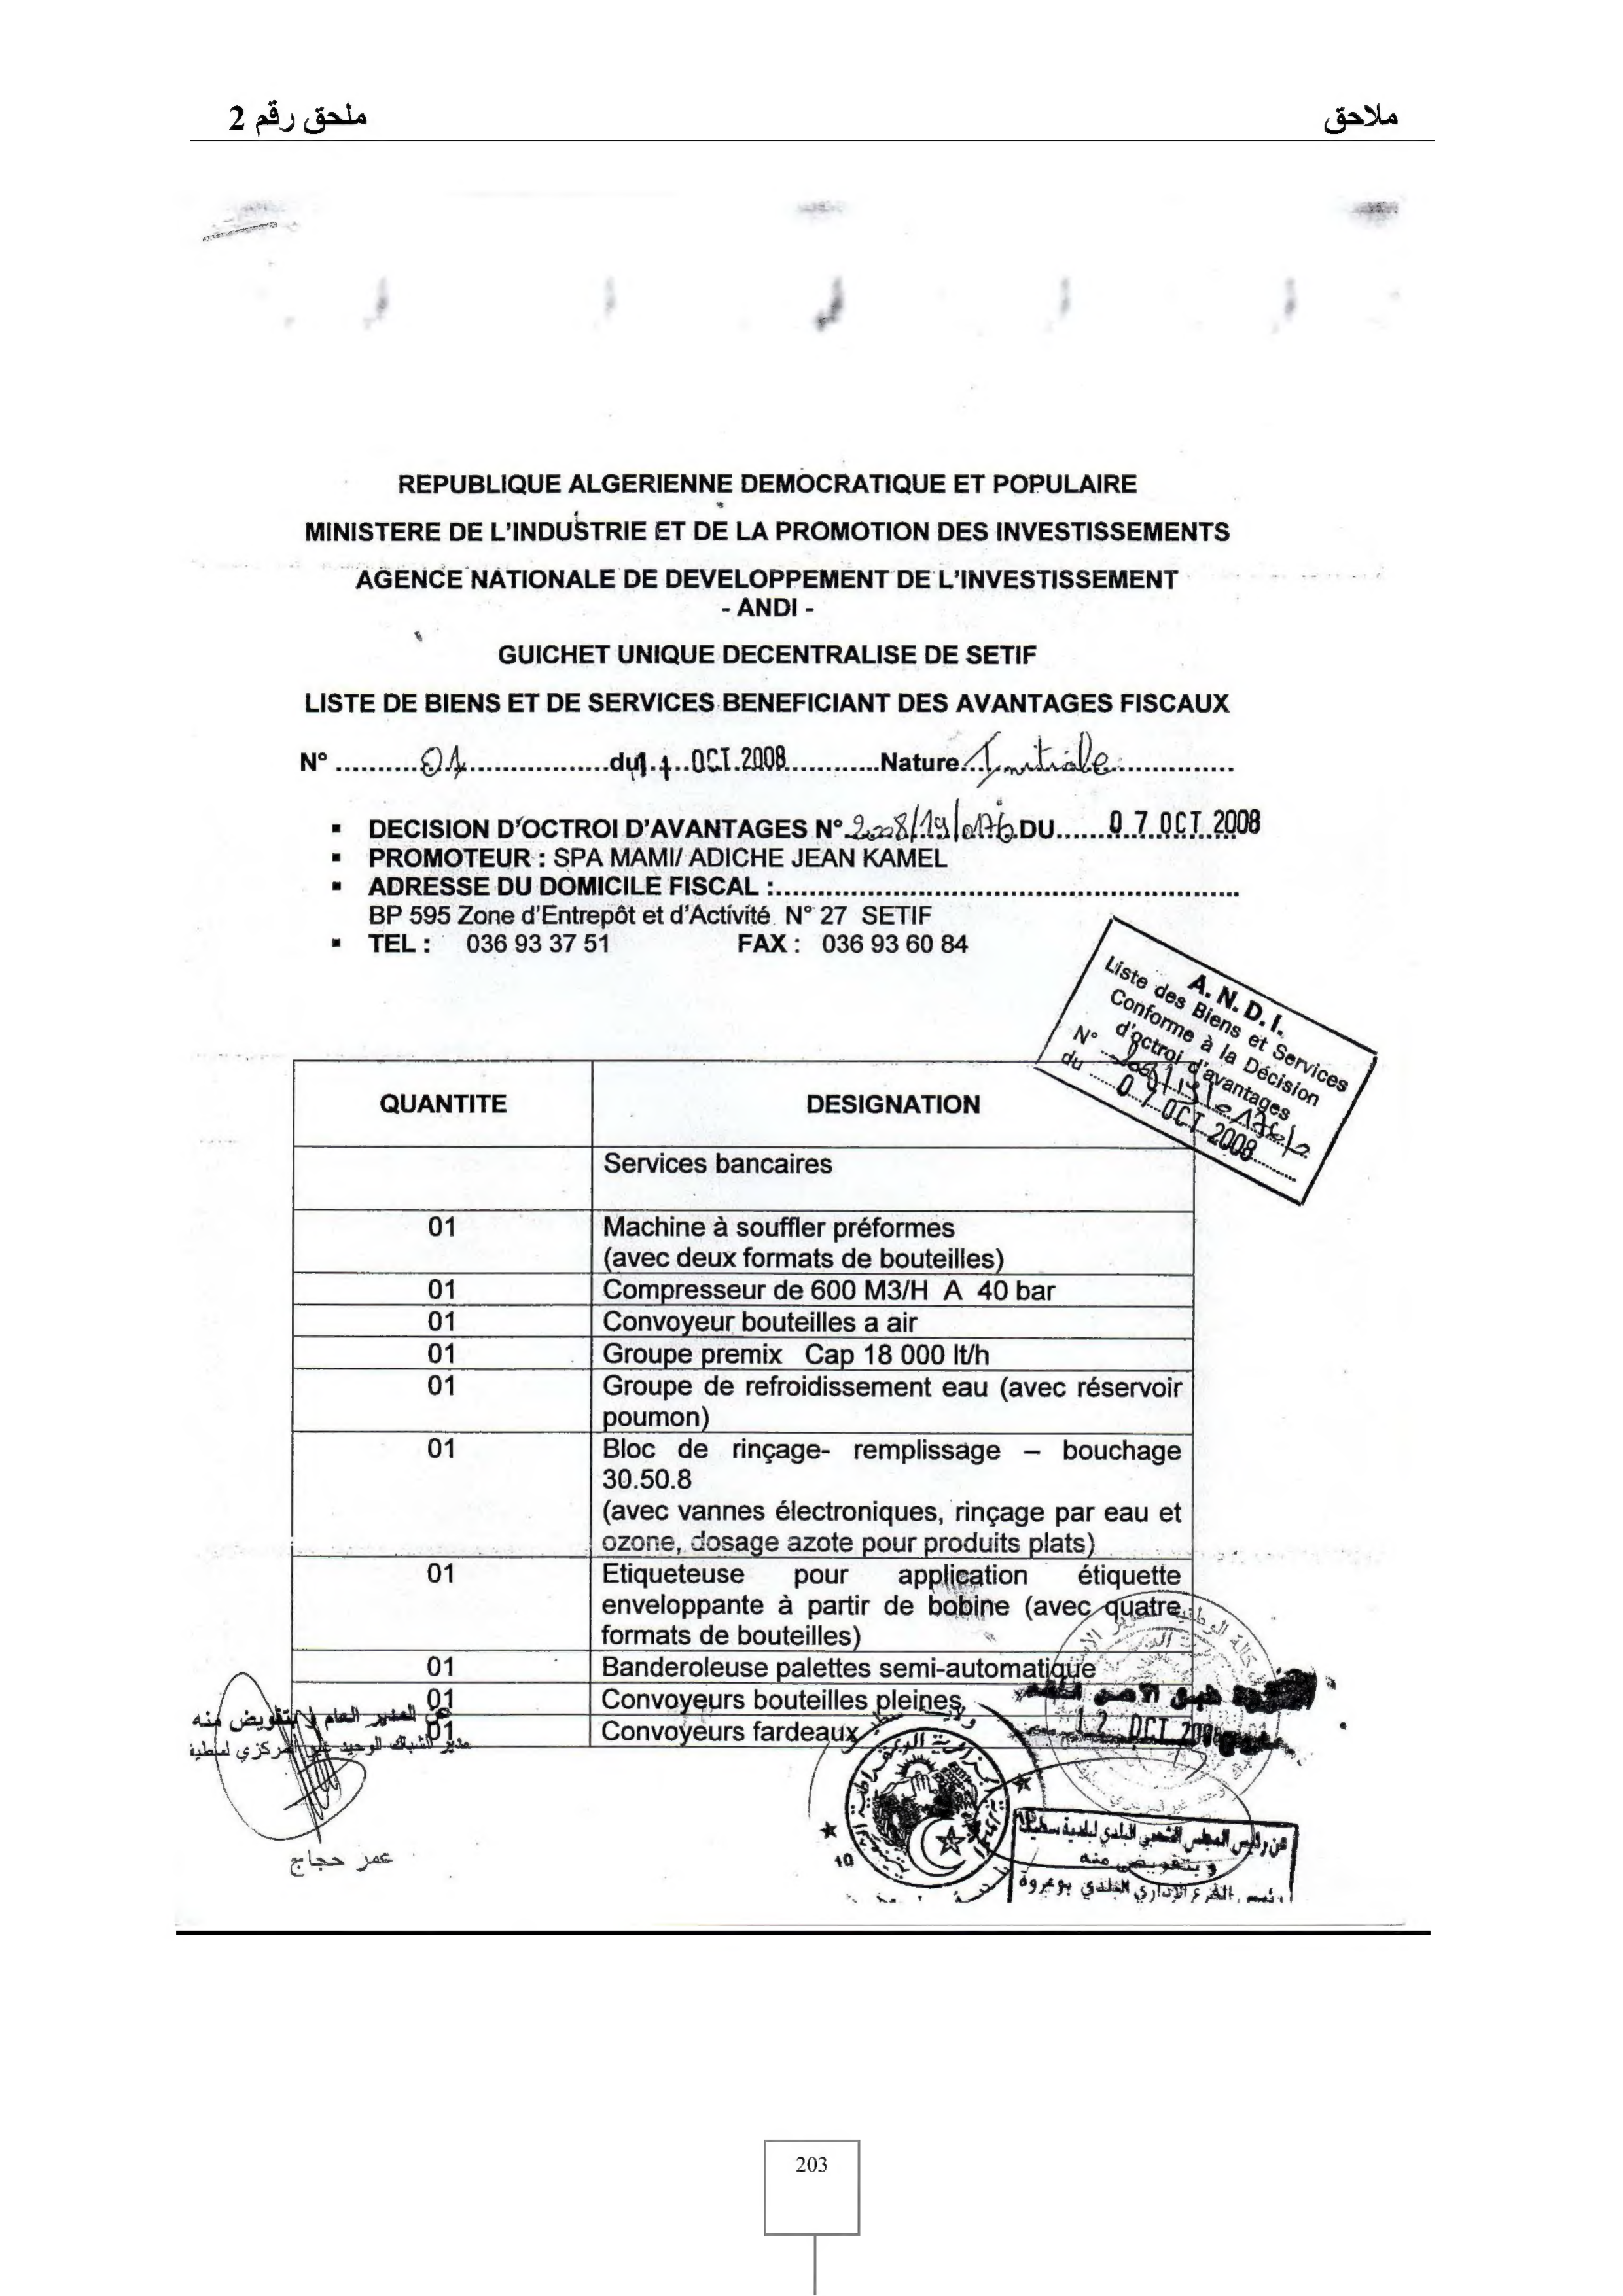 ملاحق
ملحق رقم 2
REPUBLIQUE ALGERIENNE DEMOCRATIQUE ET POPULAIRE
MINISTERE DE L'INDUSTRIE ET DE LA PROMOTION DES INVESTISSEMENTS
AGENCE NATIONALE DE DEVELOPPEMENT DE L'INVESTISSEMENT
- ANDI -
GUICHET UNIQUE DECENTRALISE DE SETIF
LISTE DE BIENS ET DE SERVICES BENEFICIANT DES AVANTAGES FISCAUX
N° ..........01.................du 11 OCT 2008...........Nature..Initiale..............
▪ DECISION D'OCTROI D'AVANTAGES N° 2008/19/0176 DU......0 7 OCT 2008
▪ PROMOTEUR : SPA MAMI/ ADICHE JEAN KAMEL
▪ ADRESSE DU DOMICILE FISCAL :.......................................................
BP 595 Zone d'Entrepôt et d'Activité N° 27 SETIF
▪ TEL : 036 93 37 51 FAX : 036 93 60 84
A.N.D.I.
Liste des Biens et Services
Conforme à la Décision
d'octroi d'avantages
N°
du ...... 0 7 OCT 2008
QUANTITE DESIGNATION
Services bancaires
01 Machine à souffler préformes
(avec deux formats de bouteilles)
01 Compresseur de 600 M3/H A 40 bar
01 Convoyeur bouteilles a air
01 Groupe premix Cap 18 000 lt/h
01 Groupe de refroidissement eau (avec réservoir
poumon)
01 Bloc de rinçage- remplissage – bouchage
30.50.8
(avec vannes électroniques, rinçage par eau et
ozone, dosage azote pour produits plats)
01 Etiqueteuse pour application étiquette
enveloppante à partir de bobine (avec quatre
formats de bouteilles)
01 Banderoleuse palettes semi-automatique
01 Convoyeurs bouteilles pleines
01 Convoyeurs fardeaux
عن المدير العام و بتفويض منه
مدير الشباك الوحيد غير المركزي لسطيف
عمر حجاج
12 OCT
عن رئيس المجلس الشعبي البلدي لبلدية سطيف
و بتفويض منه
رئيس الفرع الإداري البلدي بوعروة
10
203